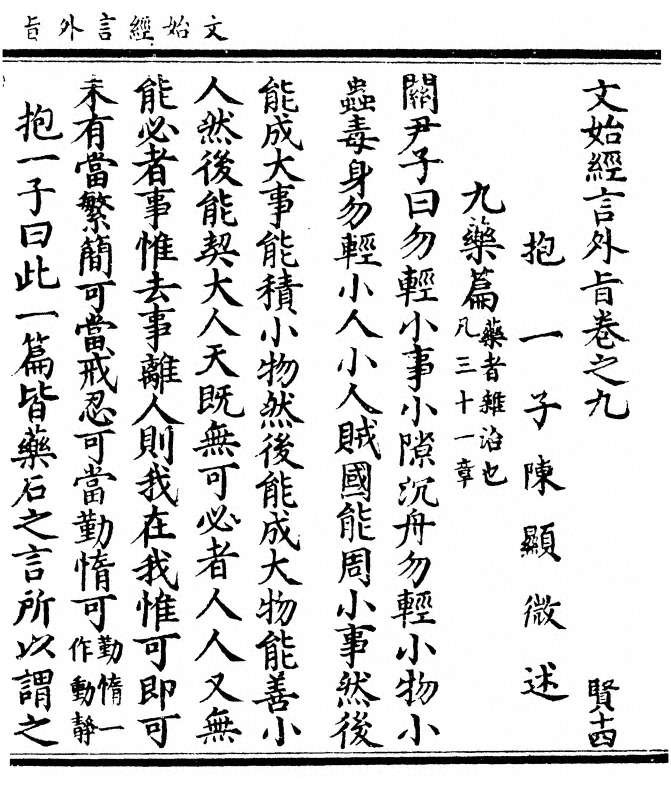 文始經言外旨
文始經言外旨卷之九
賢十四
抱一子陳顯微述
九藥篇
藥者雜治也
凡三十一章
關尹子曰勿輕小事小隙沉舟勿輕小物小
蟲毒身勿輕小人小人賊國能周小事然後
能成大事能積小物然後能成大物能善小
人然後能契大人天既無可必者人人又無
能必者事惟去事離人則我在我惟可即可
未有當繁簡可當戒忍可當勤惰可
勤惰一
作動靜
抱一子曰此一篇皆藥石之言所以謂之